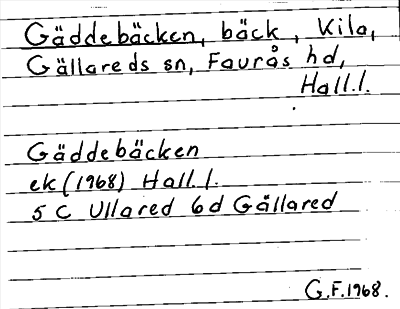 Gäddebäcken, bäck, Kila,
Gällareds sn, Faurås hd,
Hall.l.
Gäddebäcken
ek (1968) Hall.l.
5 C Ullared 6d Gällared
G.F.1968.